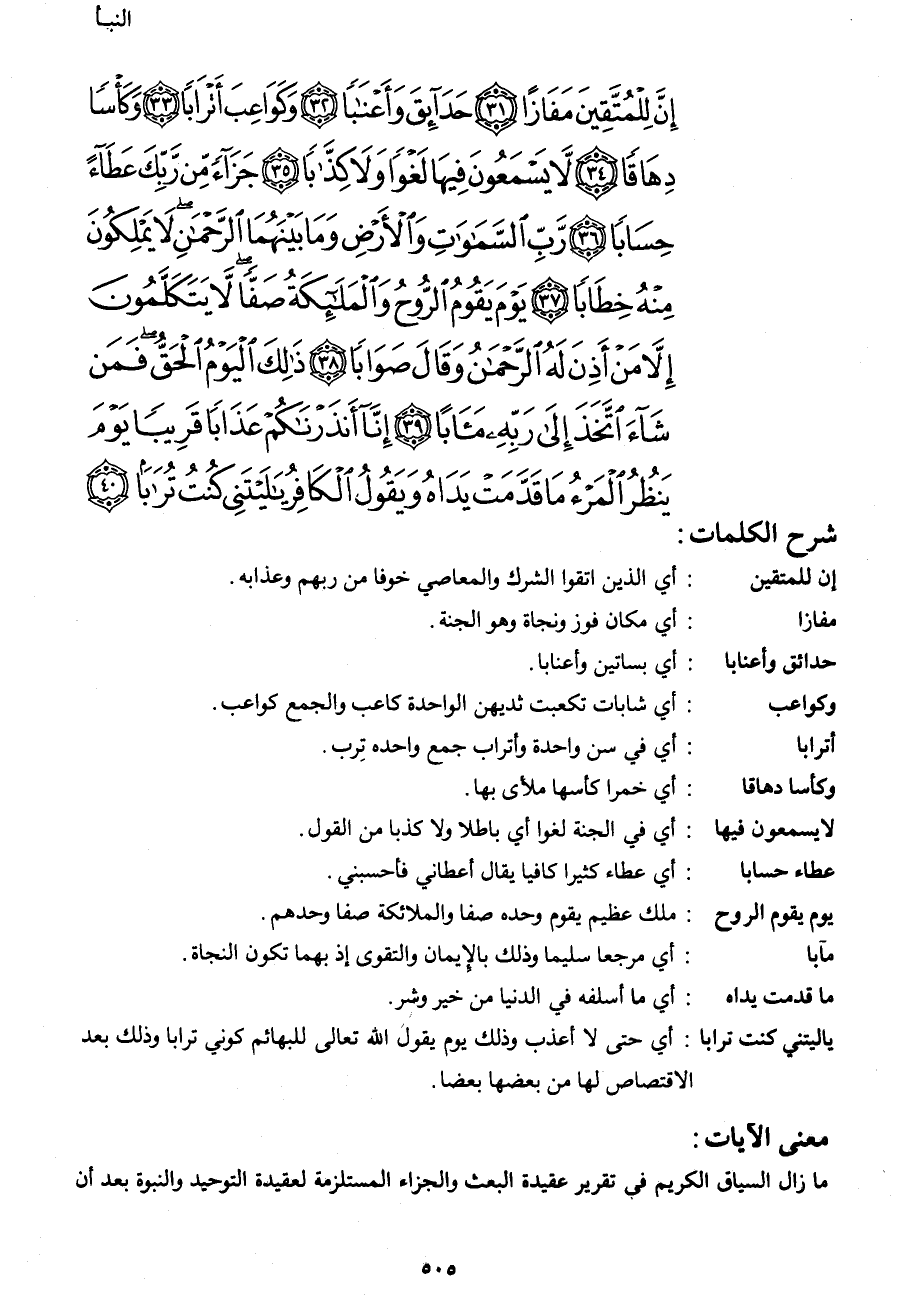 النبأ
إِنَّ لِلْمُتَّقِينَ مَفَازًا ﴿٣١﴾ حَدَآئِقَ وَأَعْنَٰبًا ﴿٣٢﴾ وَكَوَاعِبَ أَتْرَابًا ﴿٣٣﴾ وَكَأْسًا
دِهَاقًا ﴿٣٤﴾ لَّا يَسْمَعُونَ فِيهَا لَغْوًا وَلَا كِذَّٰبًا ﴿٣٥﴾ جَزَآءً مِّن رَّبِّكَ عَطَآءً
حِسَابًا ﴿٣٦﴾ رَّبِّ ٱلسَّمَٰوَٰتِ وَٱلْأَرْضِ وَمَا بَيْنَهُمَا ٱلرَّحْمَٰنِ ۖ لَا يَمْلِكُونَ
مِنْهُ خِطَابًا ﴿٣٧﴾ يَوْمَ يَقُومُ ٱلرُّوحُ وَٱلْمَلَٰٓئِكَةُ صَفًّا ۖ لَّا يَتَكَلَّمُونَ
إِلَّا مَنْ أَذِنَ لَهُ ٱلرَّحْمَٰنُ وَقَالَ صَوَابًا ﴿٣٨﴾ ذَٰلِكَ ٱلْيَوْمُ ٱلْحَقُّ ۖ فَمَن
شَآءَ ٱتَّخَذَ إِلَىٰ رَبِّهِۦ مَـَٔابًا ﴿٣٩﴾ إِنَّآ أَنذَرْنَٰكُمْ عَذَابًا قَرِيبًا يَوْمَ
يَنظُرُ ٱلْمَرْءُ مَا قَدَّمَتْ يَدَاهُ وَيَقُولُ ٱلْكَافِرُ يَٰلَيْتَنِى كُنتُ تُرَٰبًۢا ﴿٤٠﴾
شرح الكلمات :
إن للمتقين : أي الذين اتقوا الشرك والمعاصي خوفا من ربهم وعذابه .
مفازا : أي مكان فوز ونجاة وهو الجنة .
حدائق وأعنابا : أي بساتين وأعنابا .
وكواعب : أي شابات تكعبت ثديهن الواحدة كاعب والجمع كواعب .
أترابا : أي في سن واحدة وأتراب جمع واحده تِرب .
وكأسا دهاقا : أي خمرا كأسها ملأى بها .
لايسمعون فيها : أي في الجنة لغوا أي باطلا ولا كذبا من القول .
عطاء حسابا : أي عطاء كثيرا كافيا يقال أعطاني فأحسبني .
يوم يقوم الروح : ملك عظيم يقوم وحده صفا والملائكة صفا وحدهم .
مآبا : أي مرجعا سليما وذلك بالإيمان والتقوى إذ بهما تكون النجاة .
ما قدمت يداه : أي ما أسلفه في الدنيا من خير وشر .
ياليتني كنت ترابا : أي حتى لا أعذب وذلك يوم يقول الله تعالى للبهائم كوني ترابا وذلك بعد
الاقتصاص لها من بعضها بعضا .
معنى الآيات :
ما زال السياق الكريم في تقرير عقيدة البعث والجزاء المستلزمة لعقيدة التوحيد والنبوة بعد أن
٥٠٥